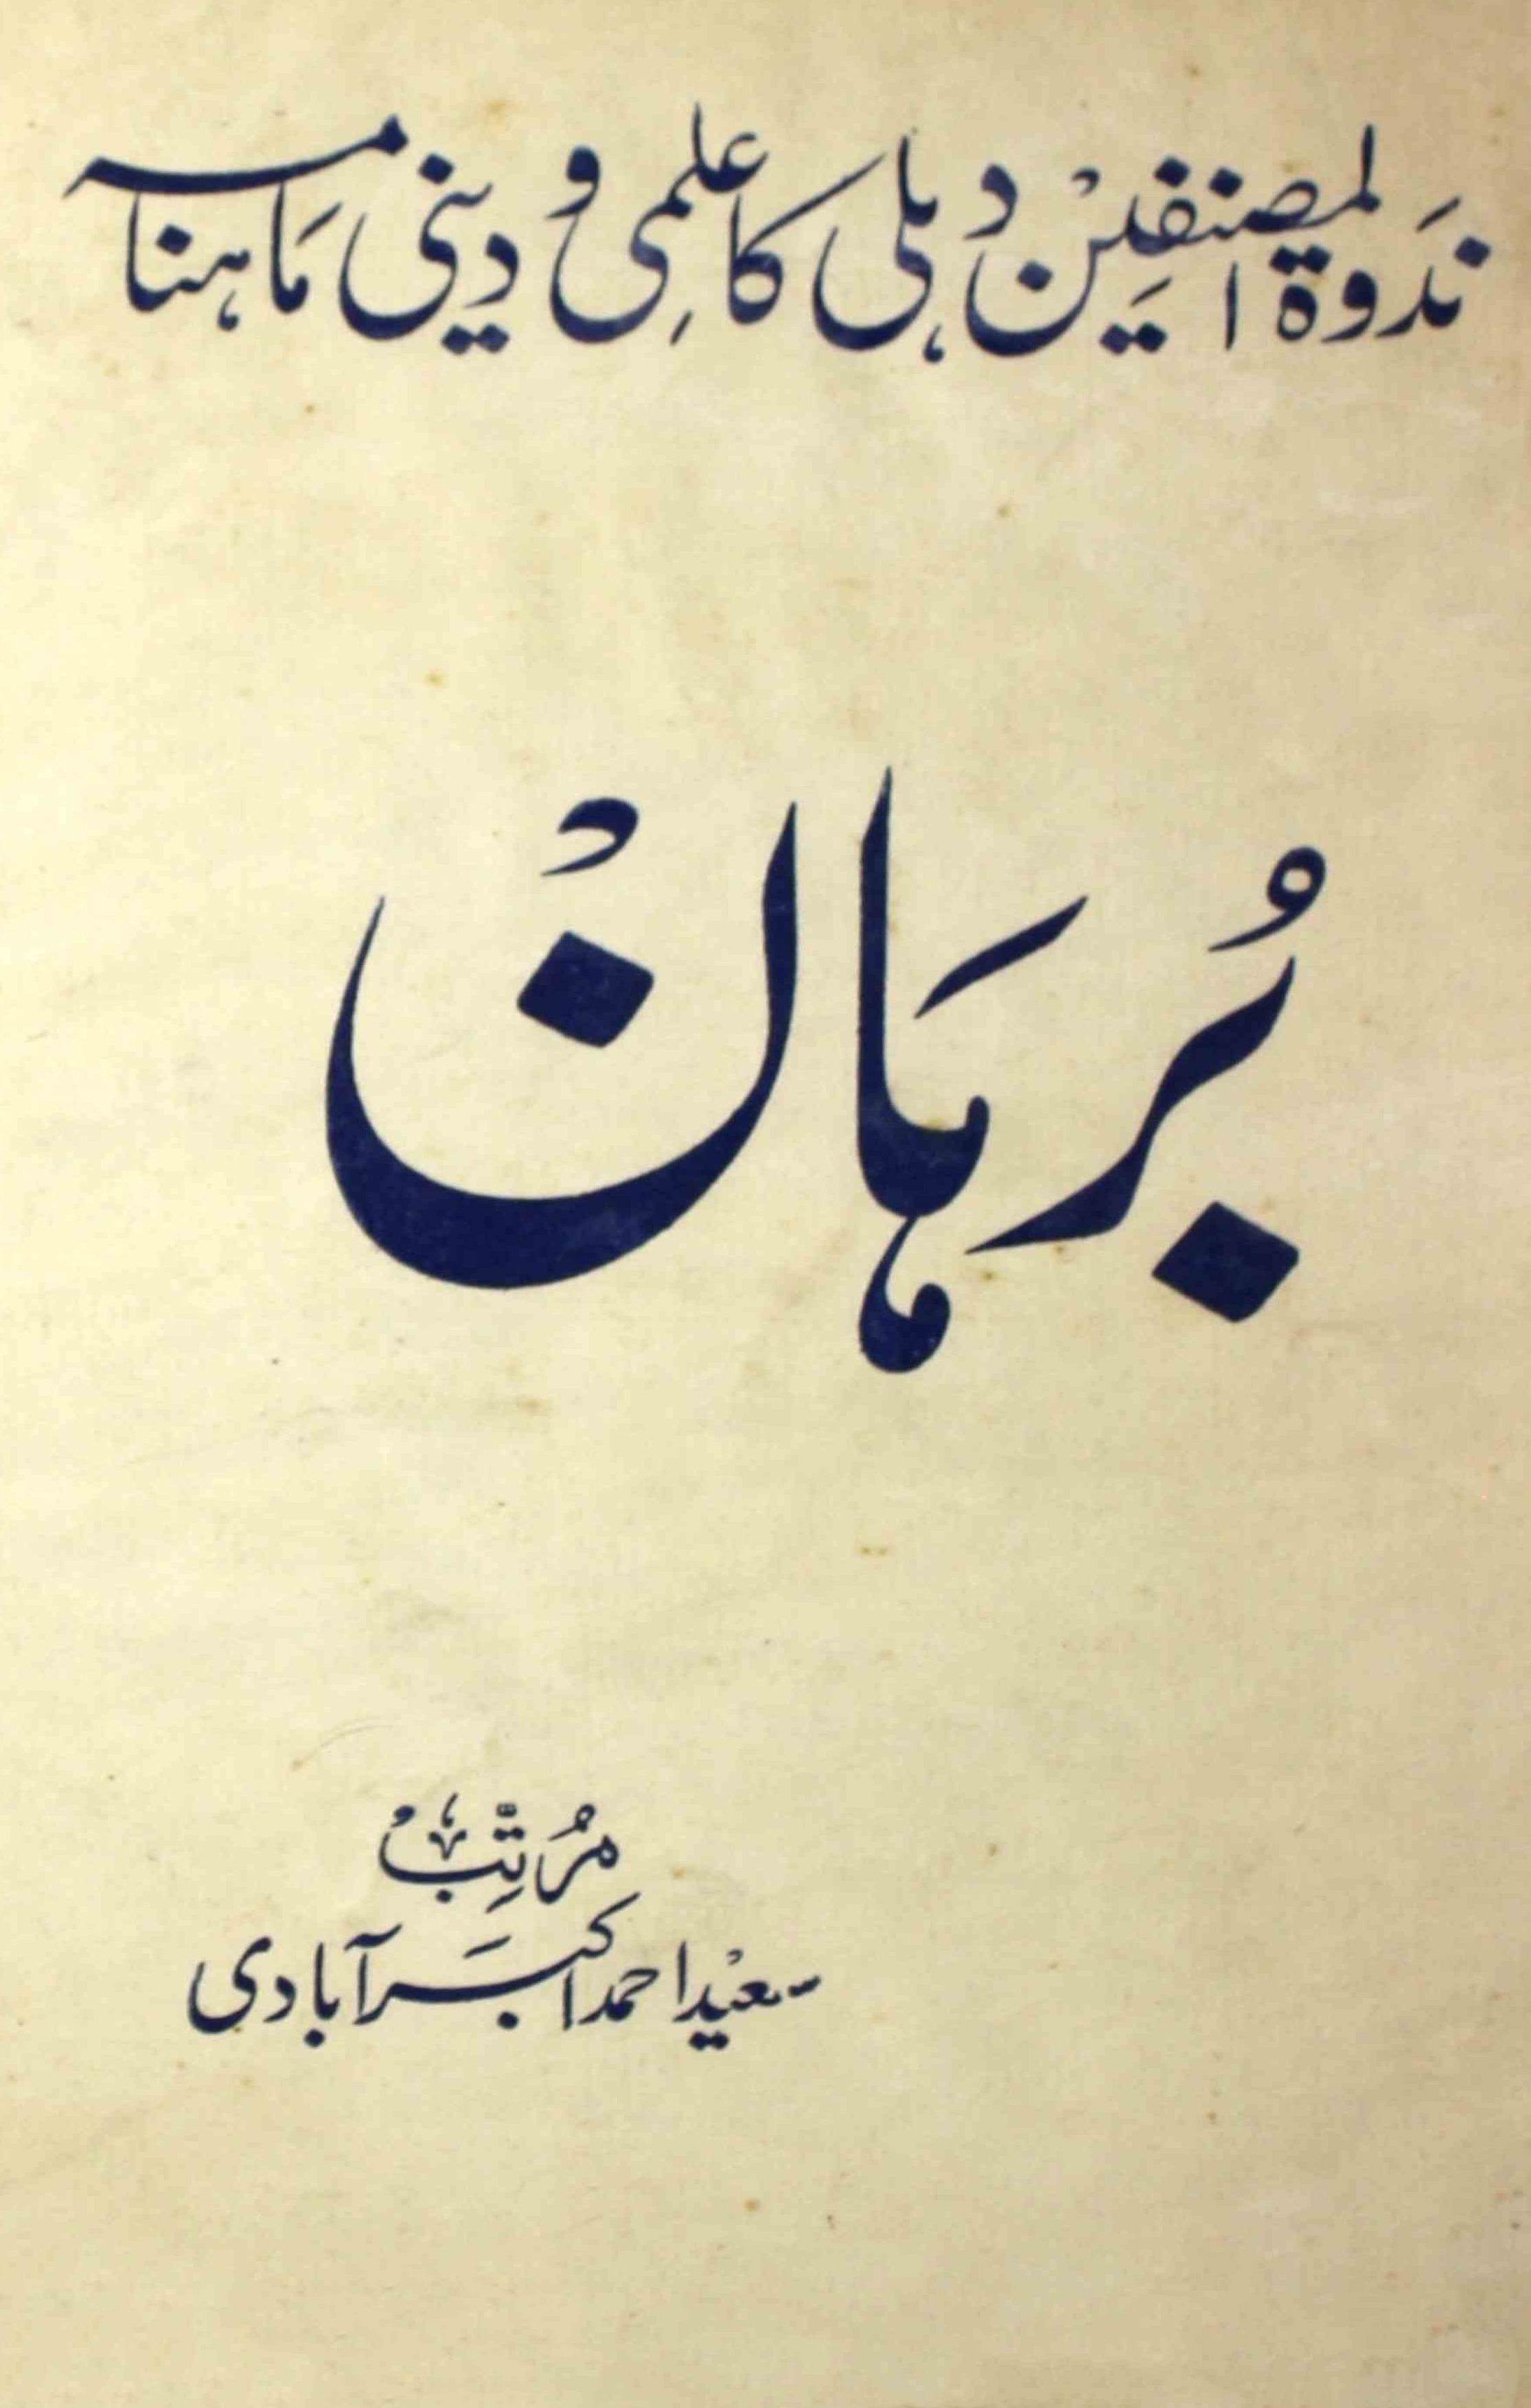 ندوۃ المصنفین دہلی کا علمی و دینی ماہنامہ
بُرہان
مُرتِّب
سعید احمد اکبرآبادی